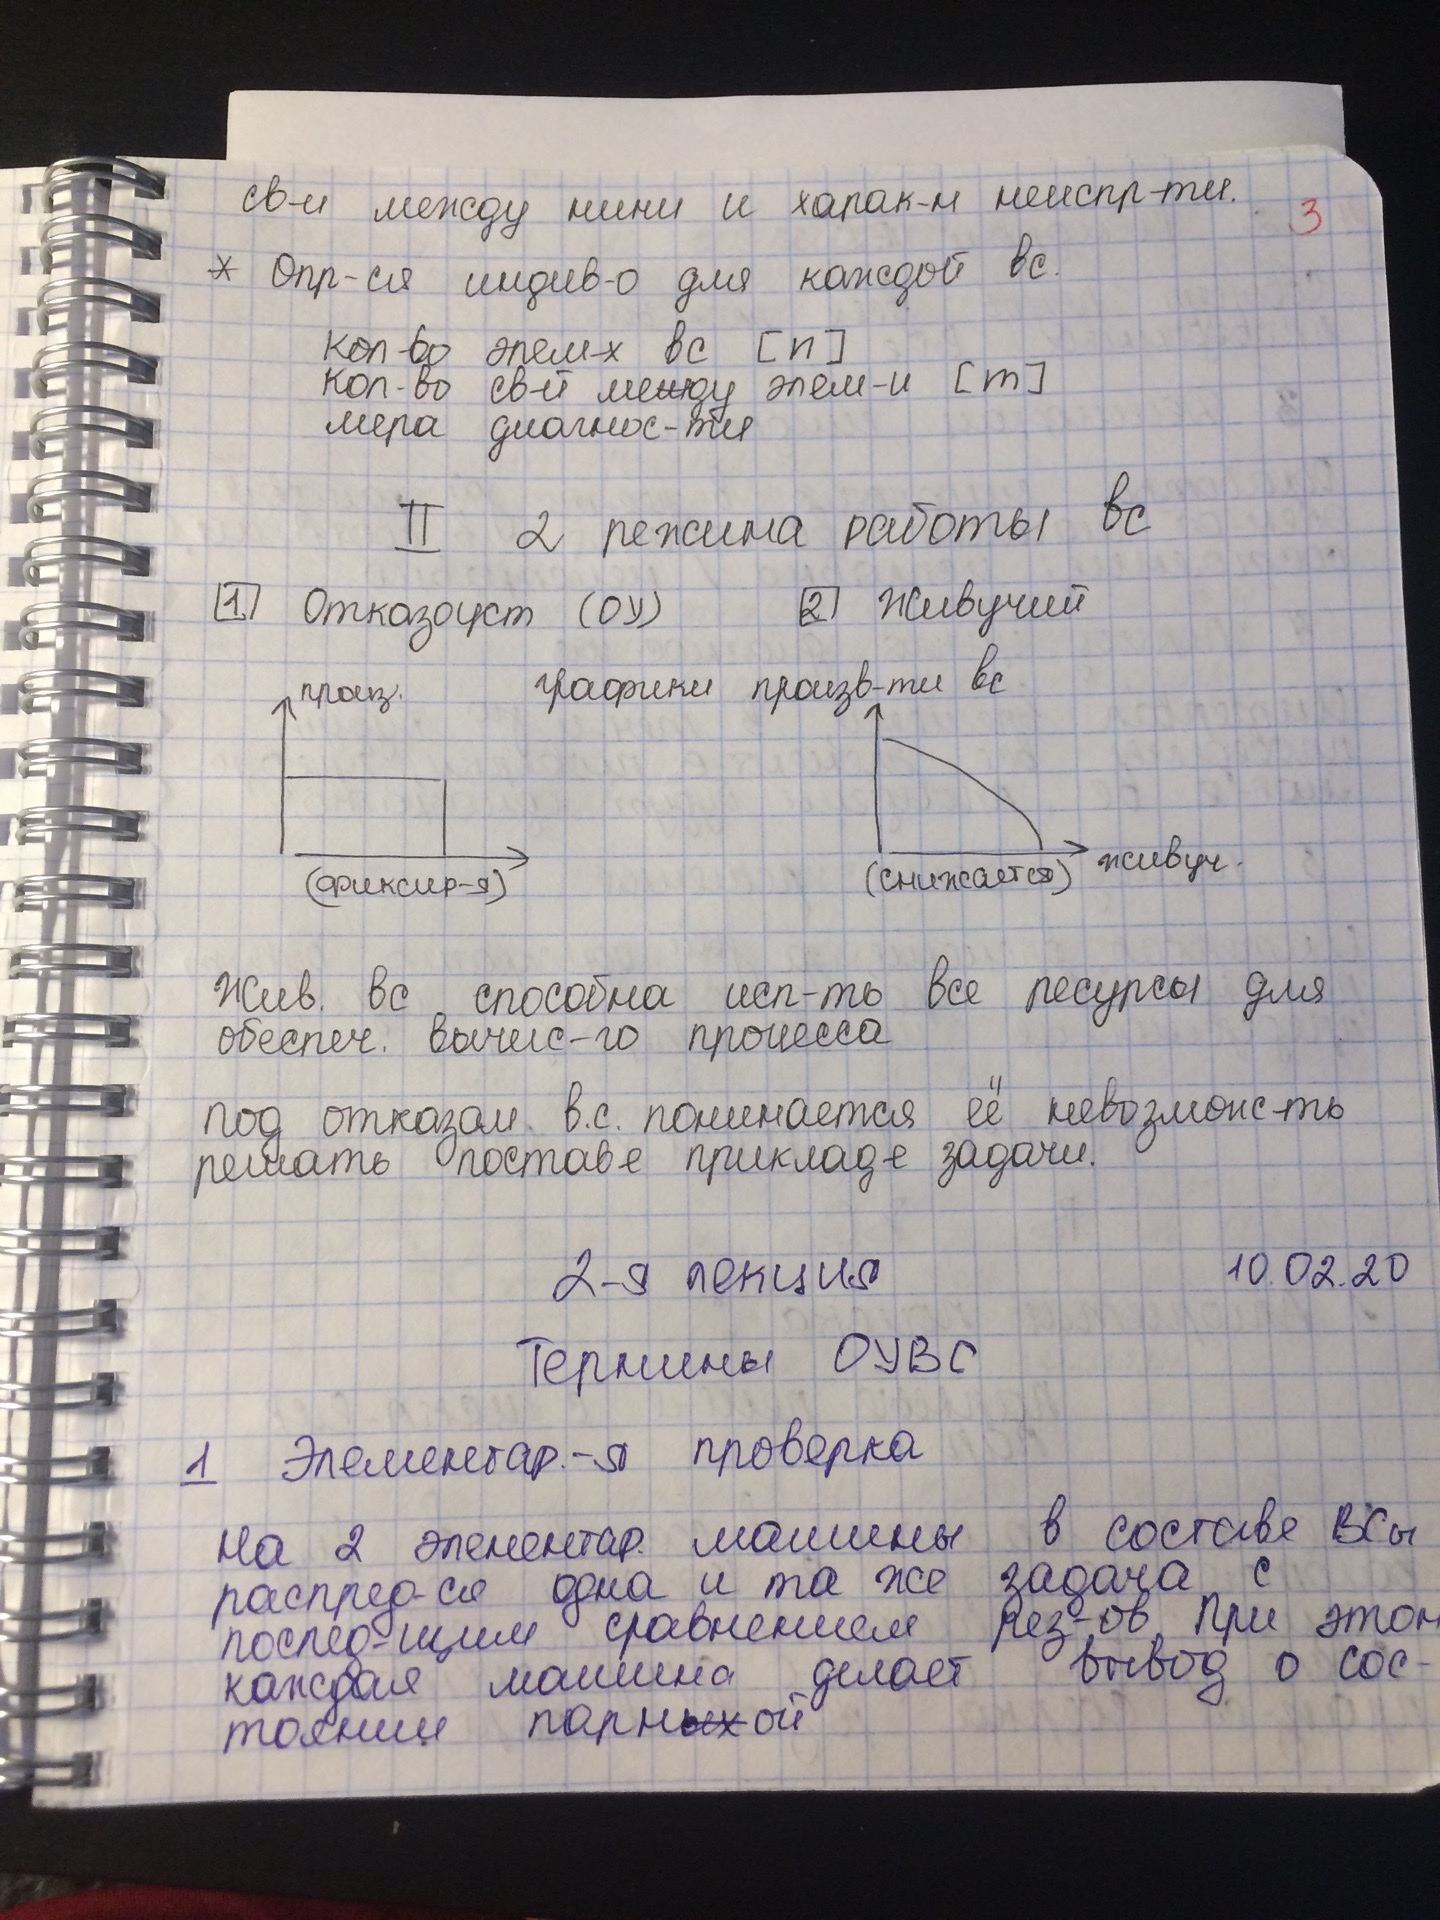 св-и между ними и харак-м неиспр-ти.
3
* Опр-ся индив-о для каждой вс.
кол-во элем-х вс [n]
кол-во св-й между элем-и [m]
мера диагнос-ти
II 2 режима работы вс
1. Отказоуст (ОУ) 2 Живучий
произ. графики произв-ти вс
живуч.
(фиксир-я) (снижается)
Жив. вс способна исп-ть все ресурсы для
обеспеч. вычис-го процесса
под отказом в.с. понимается её невозможс-ть
решать поставе приклад-е задачи.
2-я лекция 10.02.20
Термины ОУВС
1 Элементар.-я проверка
На 2 элементар. машины в составе ВСы
распред-ся одна и та же задача с
послед-щим сравнением рез-ов. При этом
каждая машина делает вывод о сос-
тоянии парныхой